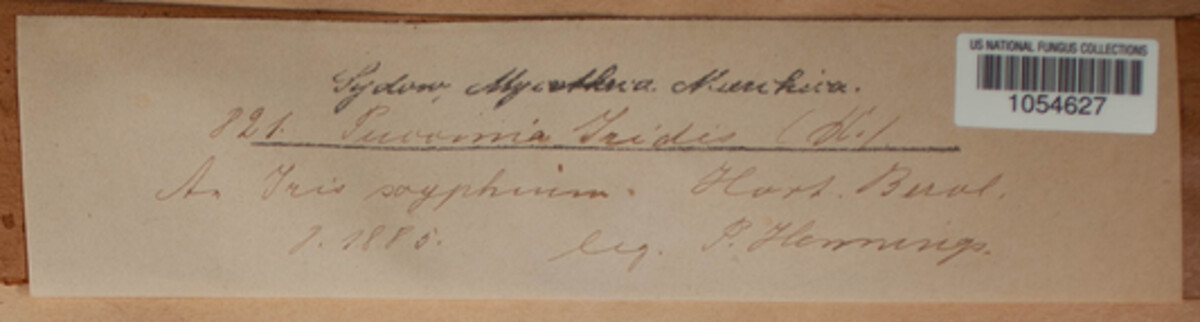 US NATIONAL FUNGUS COLLECTIONS
1054627
Sydow, Mycotheca Marchica.
821. Puccinia Iridis
An Iris xyphium. Hort. Berol.
7. 1885. leg. P. Hennings.